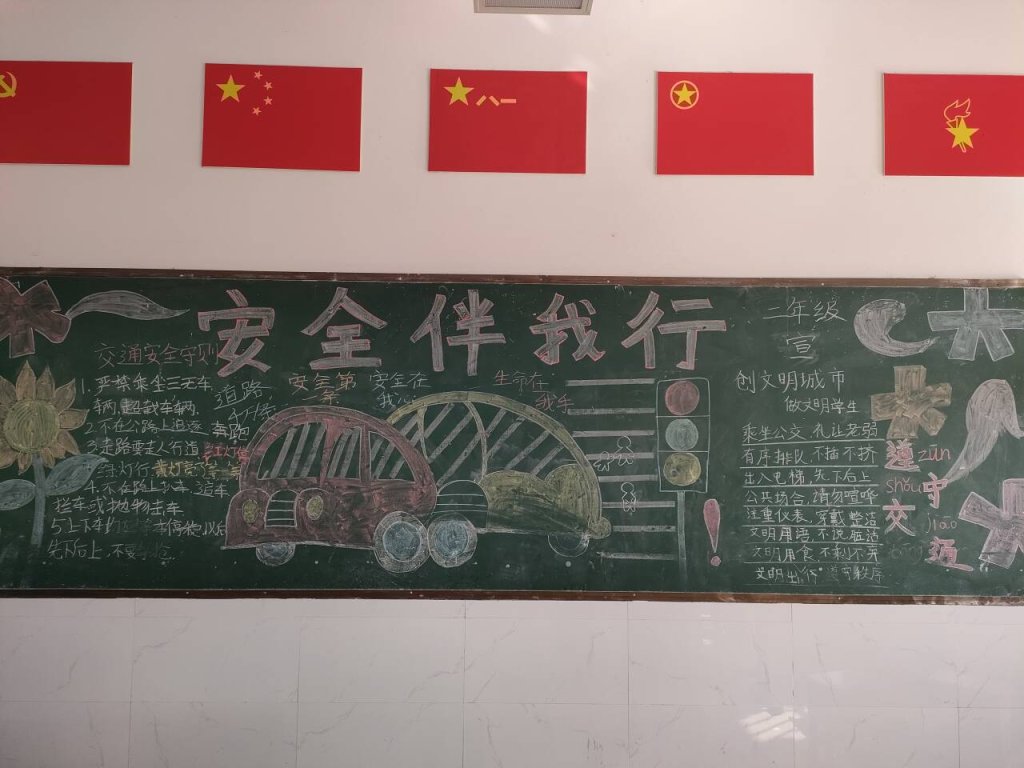 八一
安全伴我行
二年级
宣
交通安全守则
1.严禁乘坐三无车
辆,超载车辆.
2.不在公路上追逐 奔跑
3.走路要走人行道
红灯停
绿灯行 黄灯亮了等一等
4.不在路上拦车、追车
拦车或抛物击车
5.上下车 停稳以后
先下后上,不要
道路
千万条
安全第
一条
安全在
我心
生命在
我手
创文明城市
做文明学生
乘坐公交,礼让老弱
有序排队,不插不挤
出入电梯,先下后上
公共场合,请勿喧哗
注重仪表,穿戴整洁
文明用语,不说脏话
文明用食,不剩不弃
文明出行,遵守秩序
遵 zūn
shǒu 守
交 jiāo
通